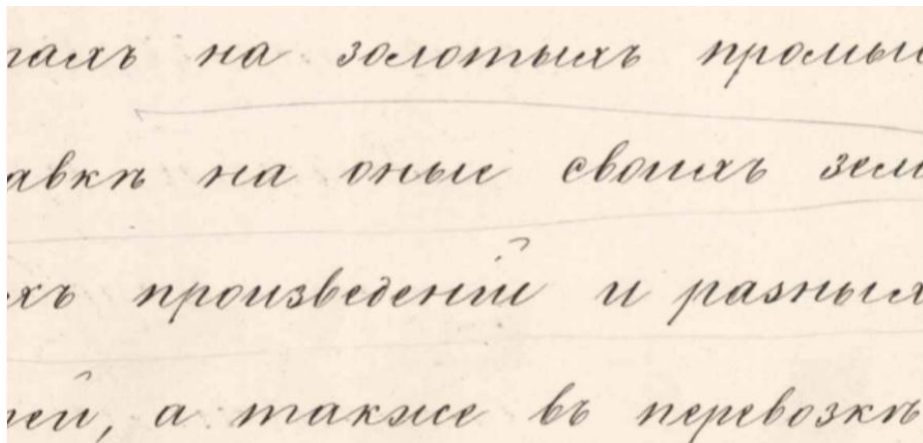 тахъ на золотыхъ промыс
авкѣ на оные своихъ земл
хъ произведеній и разныхъ
ей, а также въ перевозкѣ